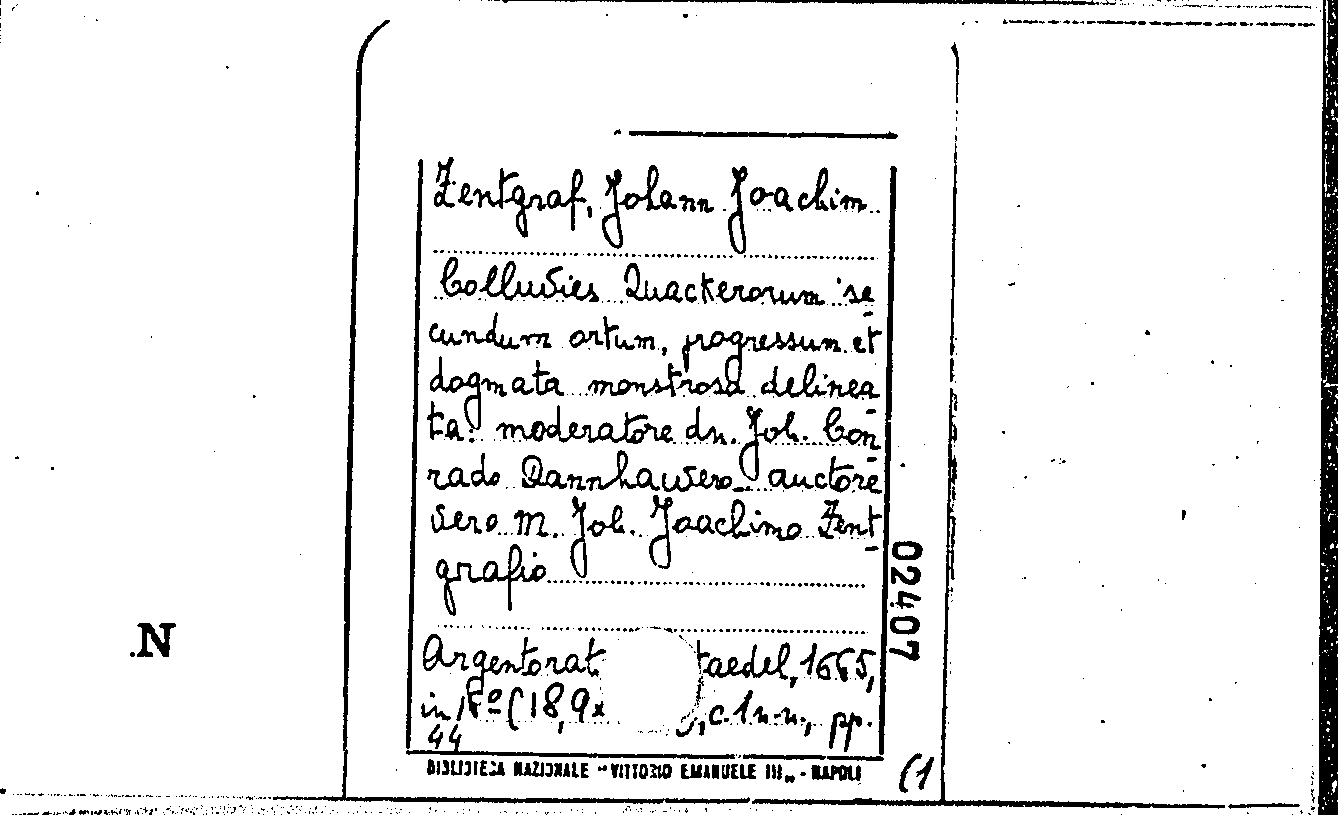 Zentgraf, Johann Joachim
Colluvies Quackerorum se
cundum ortum, progressum et
dogmata monstrosa delinea
ta: moderatore dn. Joh. Con
rado Dannhawero auctore
vero M. Joh. Joachimo Zent
grafio
Argentorat taedel, 1665,
in 8º (18,9x , c. 1 n.n., pp.
44
BIBLIOTECA NAZIONALE "VITTORIO EMANUELE III" - NAPOLI
02407
(1
.N